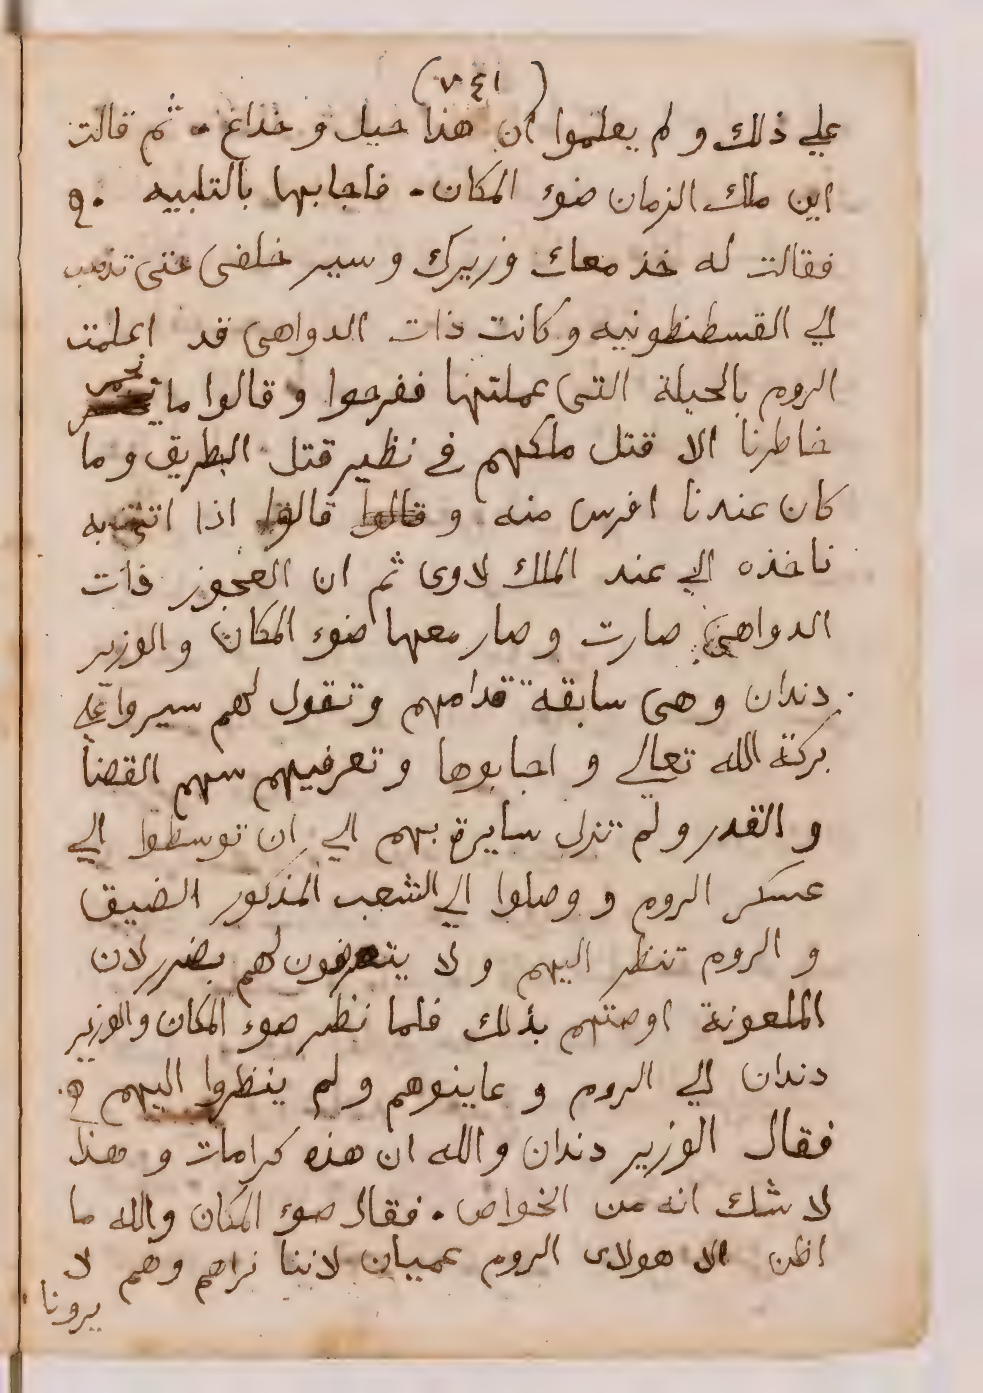 (٧٤١)
علي ذلك و لم يعلموا ان هذا حيل و خداع . ثم قالت
اين ملك الزمان ضوء المكان . فاجابها بالتلبيه .
فقالت له خذ معاك وزيرك و سير خلفى حتى تذهب
الي القسطنطونيه و كانت ذات الدواهى قد اعلمت
الروم بالحيلة التى عملتها ففرحوا و قالوا ما
خاطرنا الا قتل ملكهم في نظير قتل البطريق و ما
كان عندنا افرس منه و قالوا قالوا اذا
ناخذه الي عند الملك لاوى ثم ان العجوز ذات
الدواهى صارت و صار معها ضوء المكان و الوزير
دندان و هى سابقة قدامهم و تقول لهم سيروا علي
بركة الله تعالي و اجابوها و تعرفيهم سهم القضا
و القدر و لم تزل سايرة بهم الي ان توسطوا الي
عسكر الروم و وصلوا الي الشعب المذكور الضيق
و الروم تنظر اليهم و لا يتعرضون لهم بضرر لان
الملعونة اوصتهم بذلك فلما نظر ضوء المكان والوزير
دندان الي الروم و عاينوهم و لم ينظروا اليهم
فقال الوزير دندان والله ان هذه كرامات و هذا
لا شك انه من الخواص . فقال ضوء المكان والله ما
اظن الا هولاى الروم عميان لاننا نراهم وهم لا
يرونا